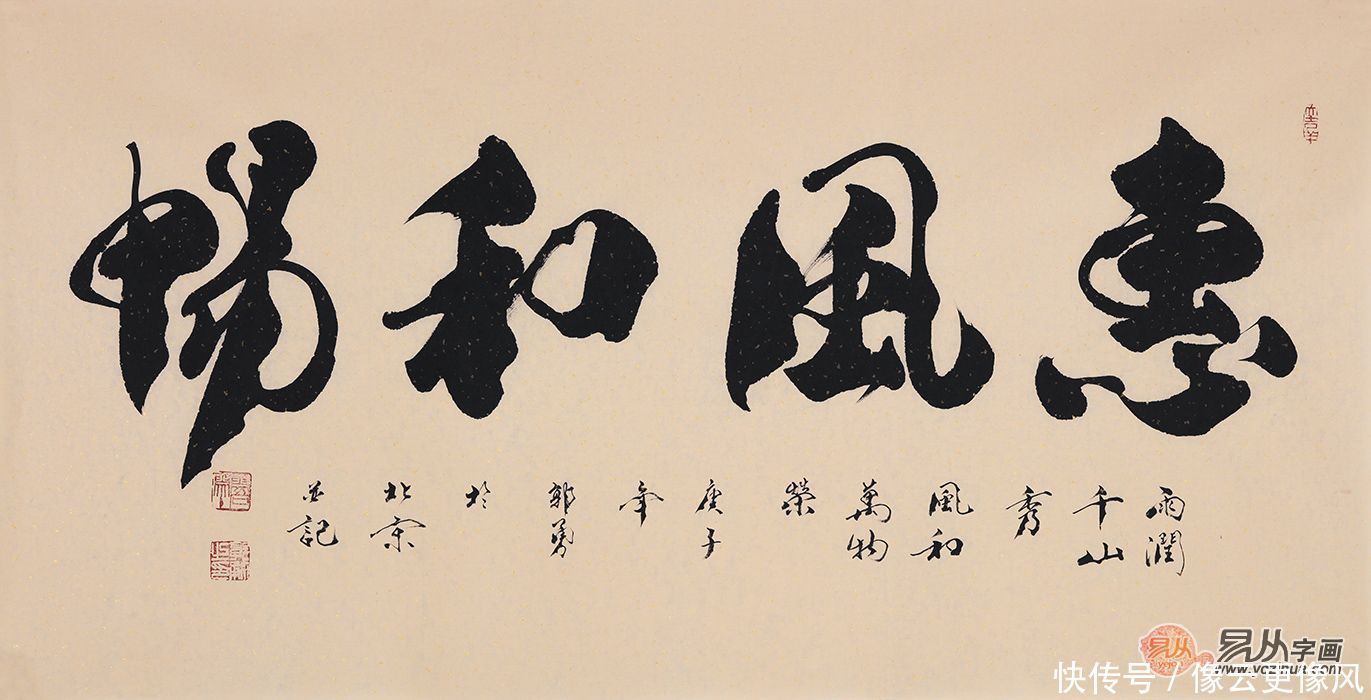 惠風和暢
雨潤
千山
秀
風和
萬物
榮
庚子
年
郭勇
於
北京
並記
易从字画
www.yczihua.com
快传号 / 像云更像风